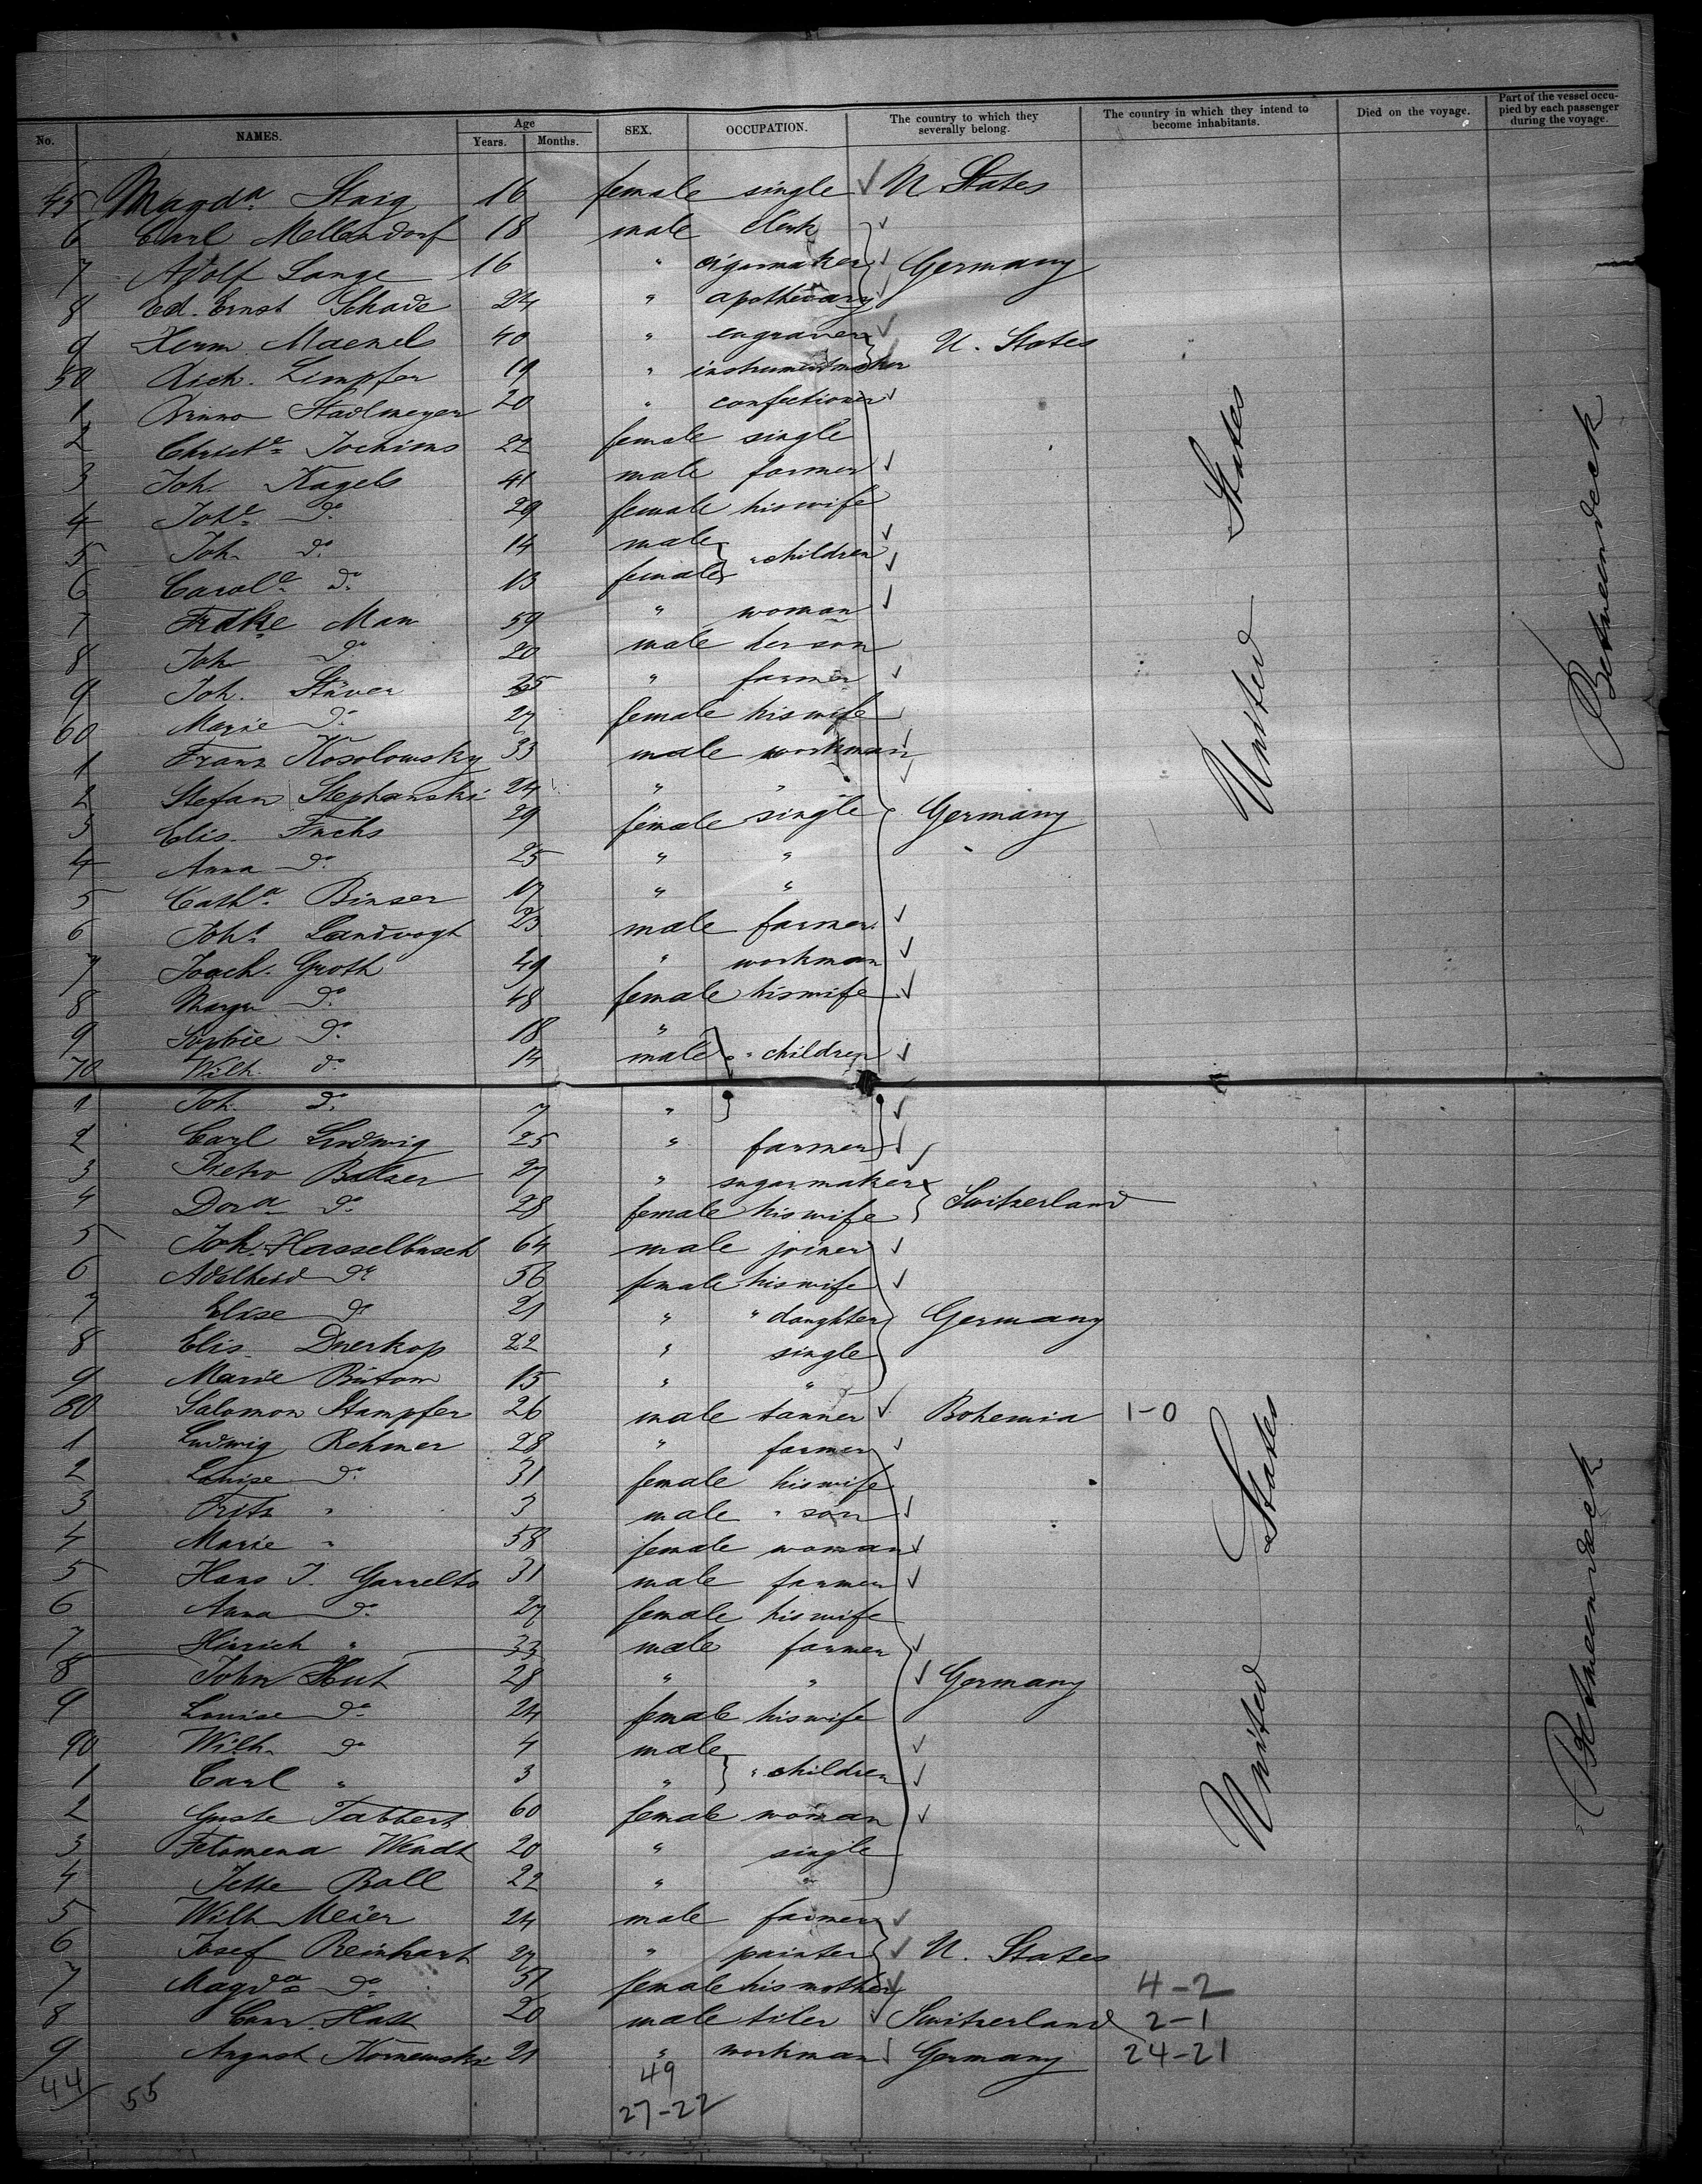 No. NAMES. Age Years. Months. SEX. OCCUPATION. The country to which they severally belong. The country in which they intend to become inhabitants. Died on the voyage. Part of the vessel occupied by each passenger during the voyage.
45 Magda Staig 16 female single ✓ U. States
6 Carl Mellendorf 18 male clerk ✓
7 Adolf Lange 16 " cigarmaker ✓ Germany
8 Ed. Ernst Schade 24 " apothecary ✓
9 Herm. Maenels 40 " engraver ✓ U. States
50 Rich. Limpfer 19 " instrumentmaker
1 Bruno Stadlmeyer 20 " confectioner ✓
2 Christe Jochims 22 female single
3 Joh. Kagels 41 male farmer ✓
4 Johe do 29 female his wife
5 Joh. do 14 male " children ✓
6 Carole do 13 female ✓
7 Frdke Mau 59 " woman ✓
8 Joh. do 20 male her son
9 Joh. Stüver 25 " farmer ✓
60 Marie do 27 female his wife
1 Franz Kosolowsky 33 male workman ✓
2 Stefan Stephanski 24 " " ✓
3 Elis. Fuchs 29 female single Germany
4 Anna do 25 " "
5 Catha Binser 17 " "
6 Johs Landvogt 23 male farmer ✓
7 Joach. Groth 49 " workman ✓
8 Margr. do 48 female his wife ✓
9 Sophie do 18 "
70 Wilh. do 14 male " children ✓
1 Joh. do 7 " ✓
2 Carl Ludwig 25 " farmer ✓
3 Pietro Balser 27 " sugarmaker ✓
4 Dora do 28 female his wife Switzerland
5 Joh. Hasselbusch 64 male joiner ✓
6 Adelheid do 56 female his wife ✓
7 Elise do 21 " " daughter Germany
8 Elis. Duerkop 22 " single
9 Marie Butow 15 " "
80 Salomon Stampfer 26 male tanner ✓ Bohemia 1-0
1 Ludwig Rehmer 28 " farmer ✓
2 Louise do 31 female his wife
3 Fritz " 3 male " son ✓
4 Marie " 58 female woman ✓
5 Hans J. Garrelts 31 male farmer ✓
6 Anna do 27 female his wife
7 Hinrich " 33 male farmer ✓
8 John Hut 28 " " ✓ Germany
9 Louise do 24 female his wife
90 Wilh. do 4 male ✓
1 Carl " 3 " " children ✓
2 Guste Tabbert 60 female woman ✓
3 Felomena Wendt 20 " single
4 Jette Ball 22 " "
5 Wilh. Meier 24 male farmer ✓
6 Josef Reinhart 27 " painter ✓ U. States
7 Magda do 51 female his mother ✓ 4-2
8 Conr. Hall 20 male tiler ✓ Switzerland 2-1
9 August Kornewski 21 " workman ✓ Germany 24-21
44 55 49
27-22
United States
Betweendeck
United States
Betweendeck